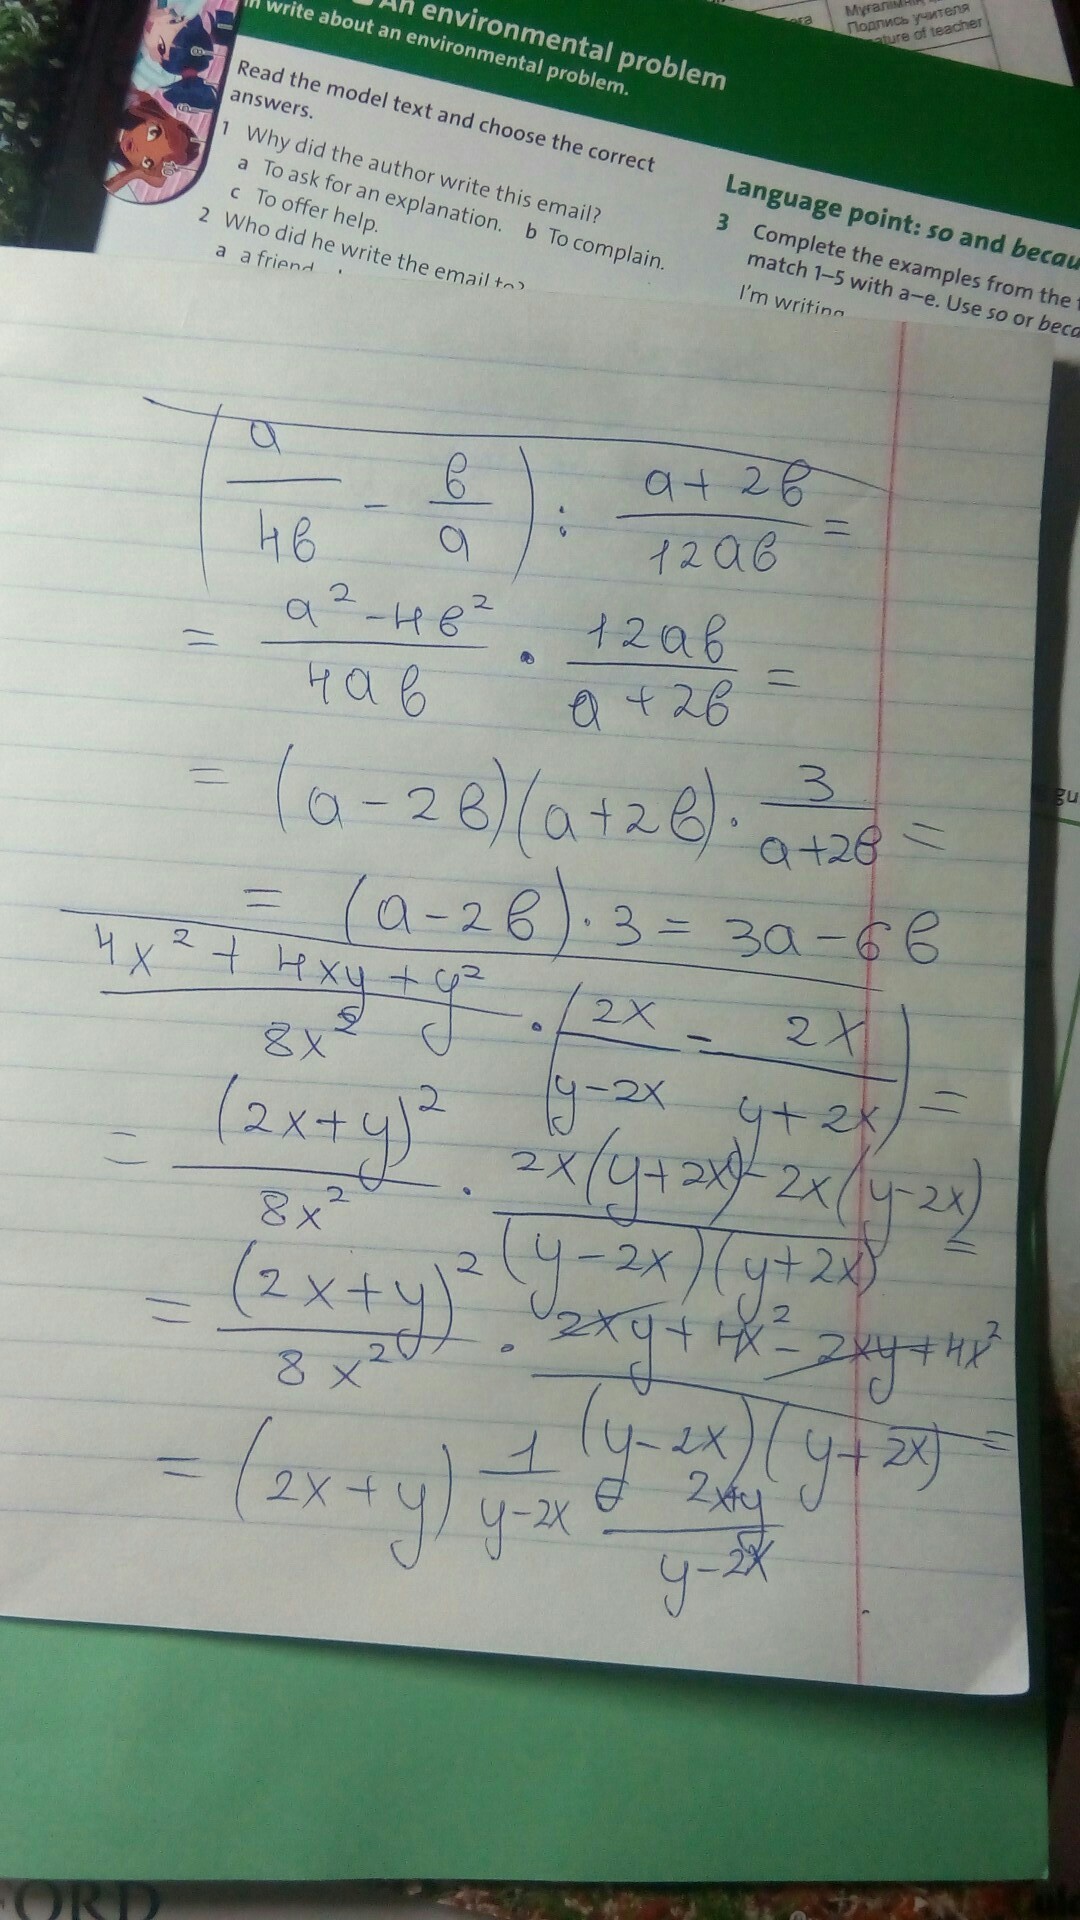 An environmental problem
write about an environmental problem.
Подпись учителя
of teacher
Read the model text and choose the correct
answers.
1 Why did the author write this email?
a To ask for an explanation. b To complain.
c To offer help.
2 Who did he write the email to?
a a friend
Language point: so and
3 Complete the examples from the
match 1–5 with a–e. Use so or
I'm writing
(a/4в - в/a) : (a+2в)/(12aв) =
= (a² - 4в²)/(4aв) · (12aв)/(a+2в) =
= (a-2в)(a+2в) · 3/(a+2в) =
= (a-2в)·3 = 3a-6в
(4x² + 4xy + y²)/(8x²) · (2x/(y-2x) - 2x/(y+2x)) =
= (2x+y)²/(8x²) · (2x(y+2x) - 2x(y-2x))/((y-2x)(y+2x)) =
= (2x+y)²/(8x²) · (2xy + 4x² - 2xy + 4x²)/((y-2x)(y+2x)) =
= (2x+y) 1/(y-2x) = (2x+y)/(y-2x)